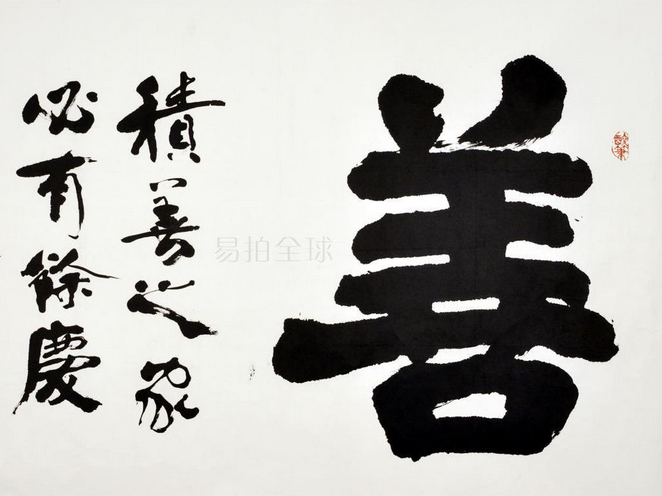 善
積善之家
必有餘慶
易拍全球